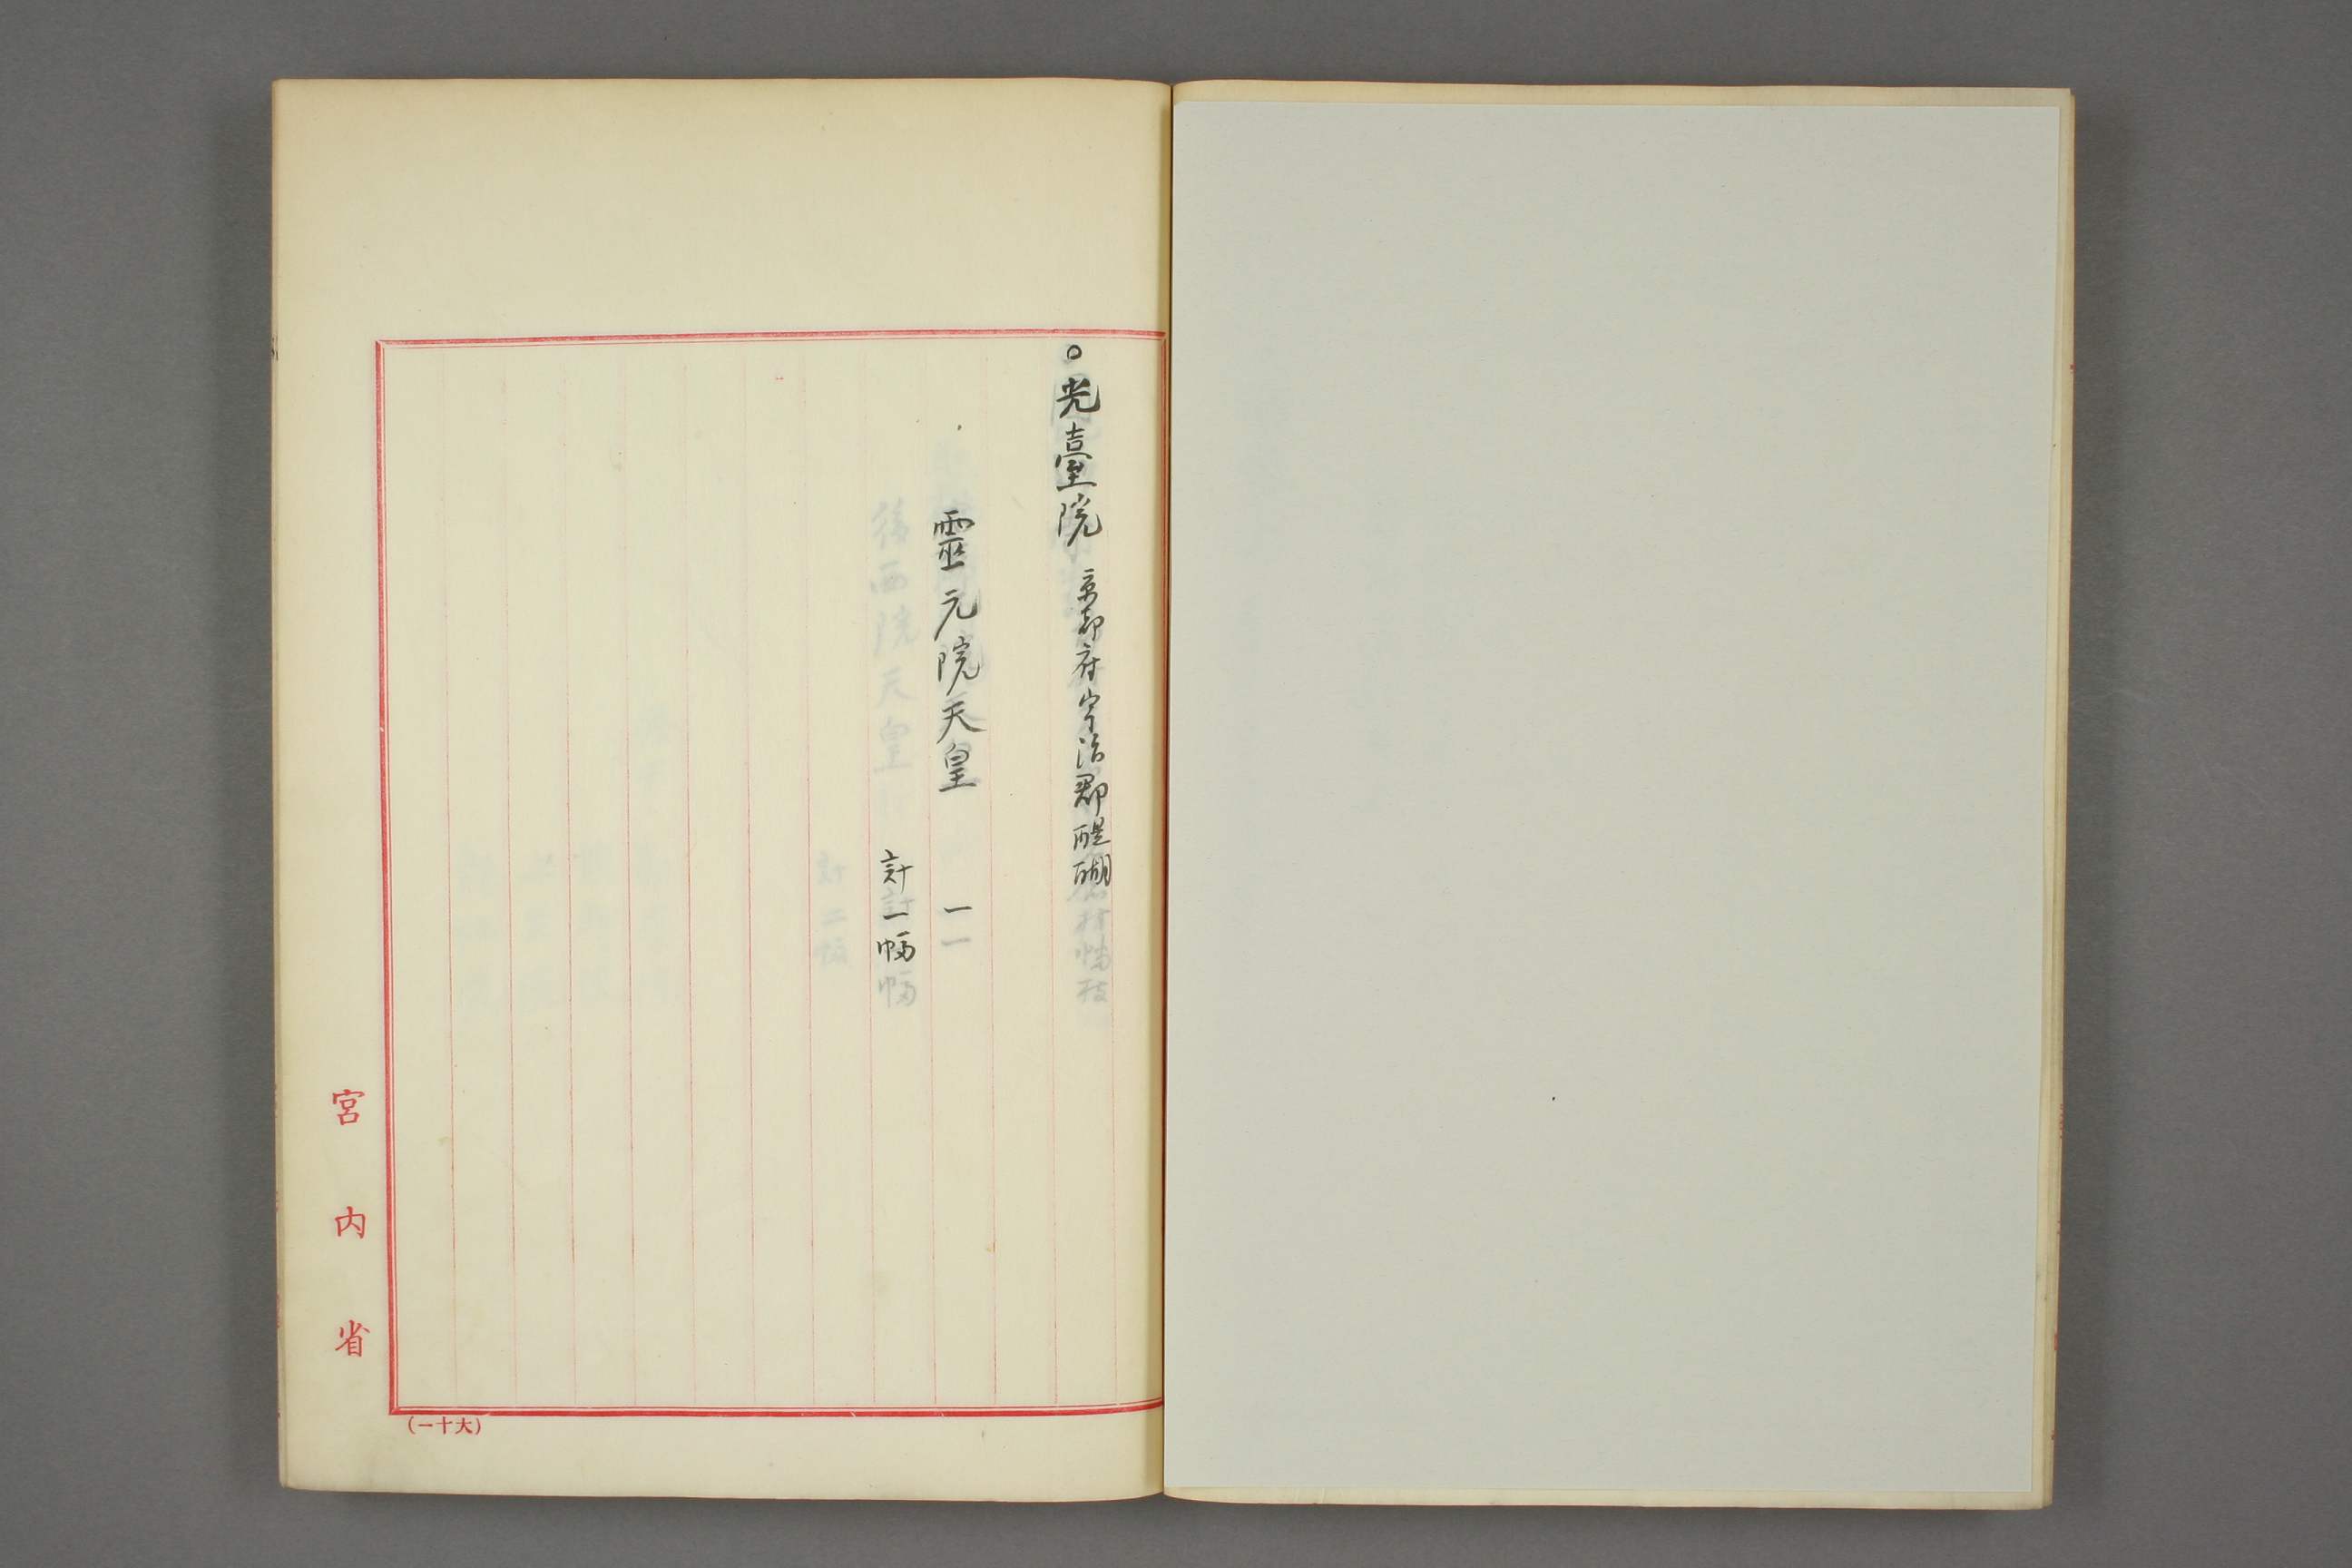 ○光臺院 京都府宇治郡醍醐
靈元院天皇 一
計一幅
宮内省
(大十一)